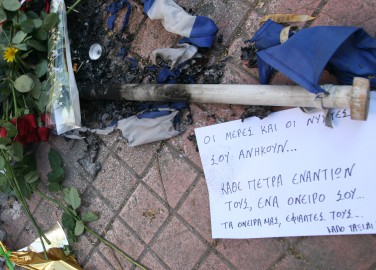 ΟΙ ΜΕΡΕΣ ΚΑΙ ΟΙ ΝΥΧΤΕΣ
ΣΟΥ ΑΝΗΚΟΥΝ...
ΚΑΘΕ ΠΕΤΡΑ ΕΝΑΝΤΙΩΝ
ΤΟΥΣ, ΕΝΑ ΟΝΕΙΡΟ ΣΟΥ...
ΤΑ ΟΝΕΙΡΑ ΜΑΣ, ΕΦΙΑΛΤΕΣ ΤΟΥΣ...
ΚΑΛΟ ΤΑΞΙΔΙ